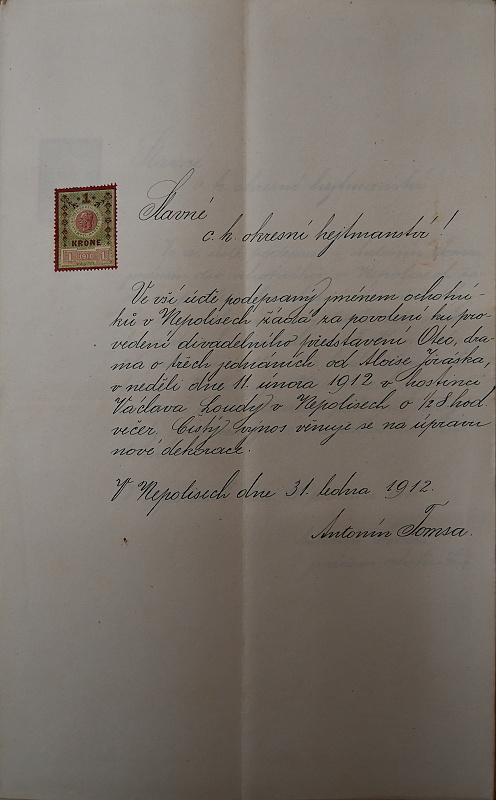 1
KRONE
1 1910 1
Slavné
c. k. okresní hejtmanství!
Ve vší úctě podepsaný jménem ochotní-
ků v Nepolisech žádá za povolení ku pro-
vedení divadelního představení Otec, dra-
ma o třech jednáních od Aloise Jiráska,
v neděli dne 11. února 1912 v hostinci
Václava Loudy v Nepolisech o 1/2 8 hod.
večer. Čistý výnos věnuje se na úpravu
nové dekorace.
V Nepolisech dne 31. ledna 1912.
Antonín Tomsa.